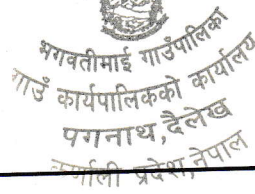 भगवतीमाई गाउँपालिका
गाउँ कार्यपालिकको कार्यालय
पगनाथ,दैलेख
कर्णाली प्रदेश,नेपाल